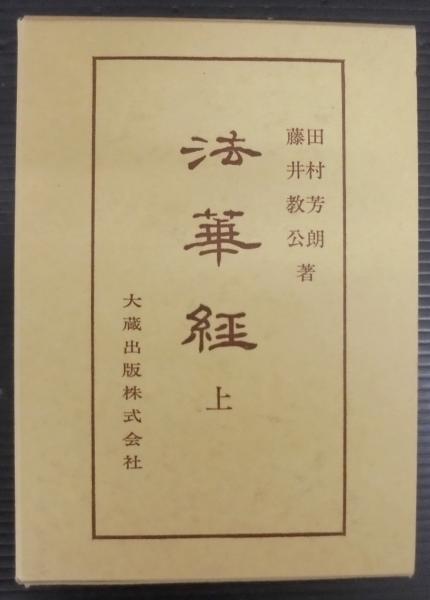 田村芳朗
藤井教公 著
法華経
上
大蔵出版株式会社